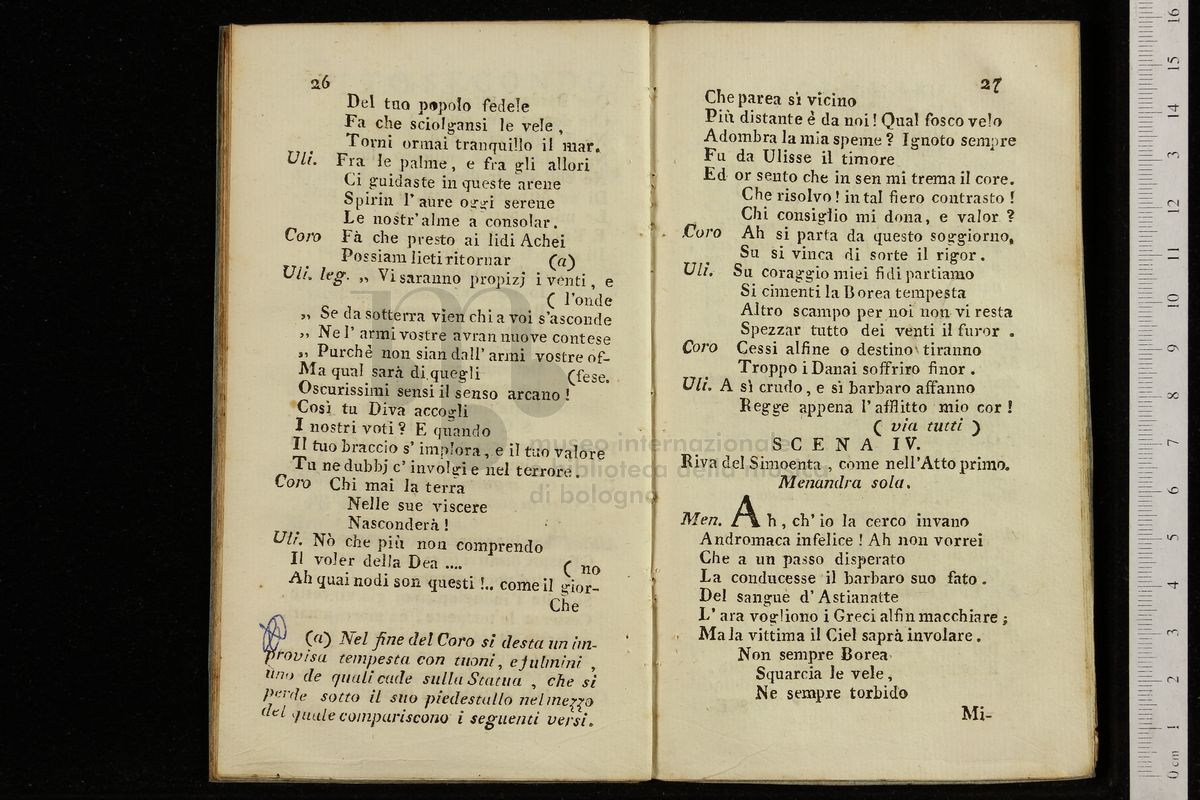 26
Del tuo popolo fedele
Fa che sciolgansi le vele ,
Torni ormai tranquillo il mar.
Uli. Fra le palme, e fra gli allori
Ci guidaste in queste arene
Spirin l' aure oggi serene
Le nostr'alme a consolar.
Coro Fà che presto ai lidi Achei
Possiam lieti ritornar (a)
Uli. leg. „ Vi saranno propizj i venti, e
( l'onde
„ Se da sotterra vien chi a voi s'asconde
„ Ne l' armi vostre avran nuove contese
„ Purchè non sian dall' armi vostre of-
Ma qual sarà di quegli (fese.
Oscurissimi sensi il senso arcano !
Così tu Diva accogli
I nostri voti? E quando
Il tuo braccio s' implora, e il tuo valore
Tu ne dubbj c' involgi e nel terrore.
Coro Chi mai la terra
Nelle sue viscere
Nasconderà!
Uli. Nò che più non comprendo
Il voler della Dea .... ( no
Ah quai nodi son questi !.. come il gior-
Che
(a) Nel fine del Coro si desta un im-
provisa tempesta con tuoni, e fulmini ,
uno de quali cade sulla Statua , che si
perde sotto il suo piedestallo nel mezzo
del quale compariscono i seguenti versi.
27
Che parea sì vicino
Più distante è da noi! Qual fosco velo
Adombra la mia speme? Ignoto sempre
Fu da Ulisse il timore
Ed or sento che in sen mi trema il core.
Che risolvo! in tal fiero contrasto !
Chi consiglio mi dona, e valor ?
Coro Ah si parta da questo soggiorno,
Su si vinca di sorte il rigor.
Uli. Su coraggio miei fidi partiamo
Si cimenti la Borea tempesta
Altro scampo per noi non vi resta
Spezzar tutto dei venti il furor .
Coro Cessi alfine o destino tiranno
Troppo i Danai soffriro finor .
Uli. A sì crudo, e sì barbaro affanno
Regge appena l' afflitto mio cor!
( via tutti )
SCENA IV.
Riva del Simoenta , come nell'Atto primo.
Menandra sola.
Men. Ah, ch' io la cerco invano
Andromaca infelice ! Ah non vorrei
Che a un passo disperato
La conducesse il barbaro suo fato .
Del sangue d' Astianatte
L' ara vogliono i Greci alfin macchiare ;
Ma la vittima il Ciel saprà involare .
Non sempre Borea
Squarcia le vele ,
Ne sempre torbido
Mi-
museo internazionale
e biblioteca della musica
di bologna
0 cm 1 2 3 4 5 6 7 8 9 10 11 12 13 14 15 16